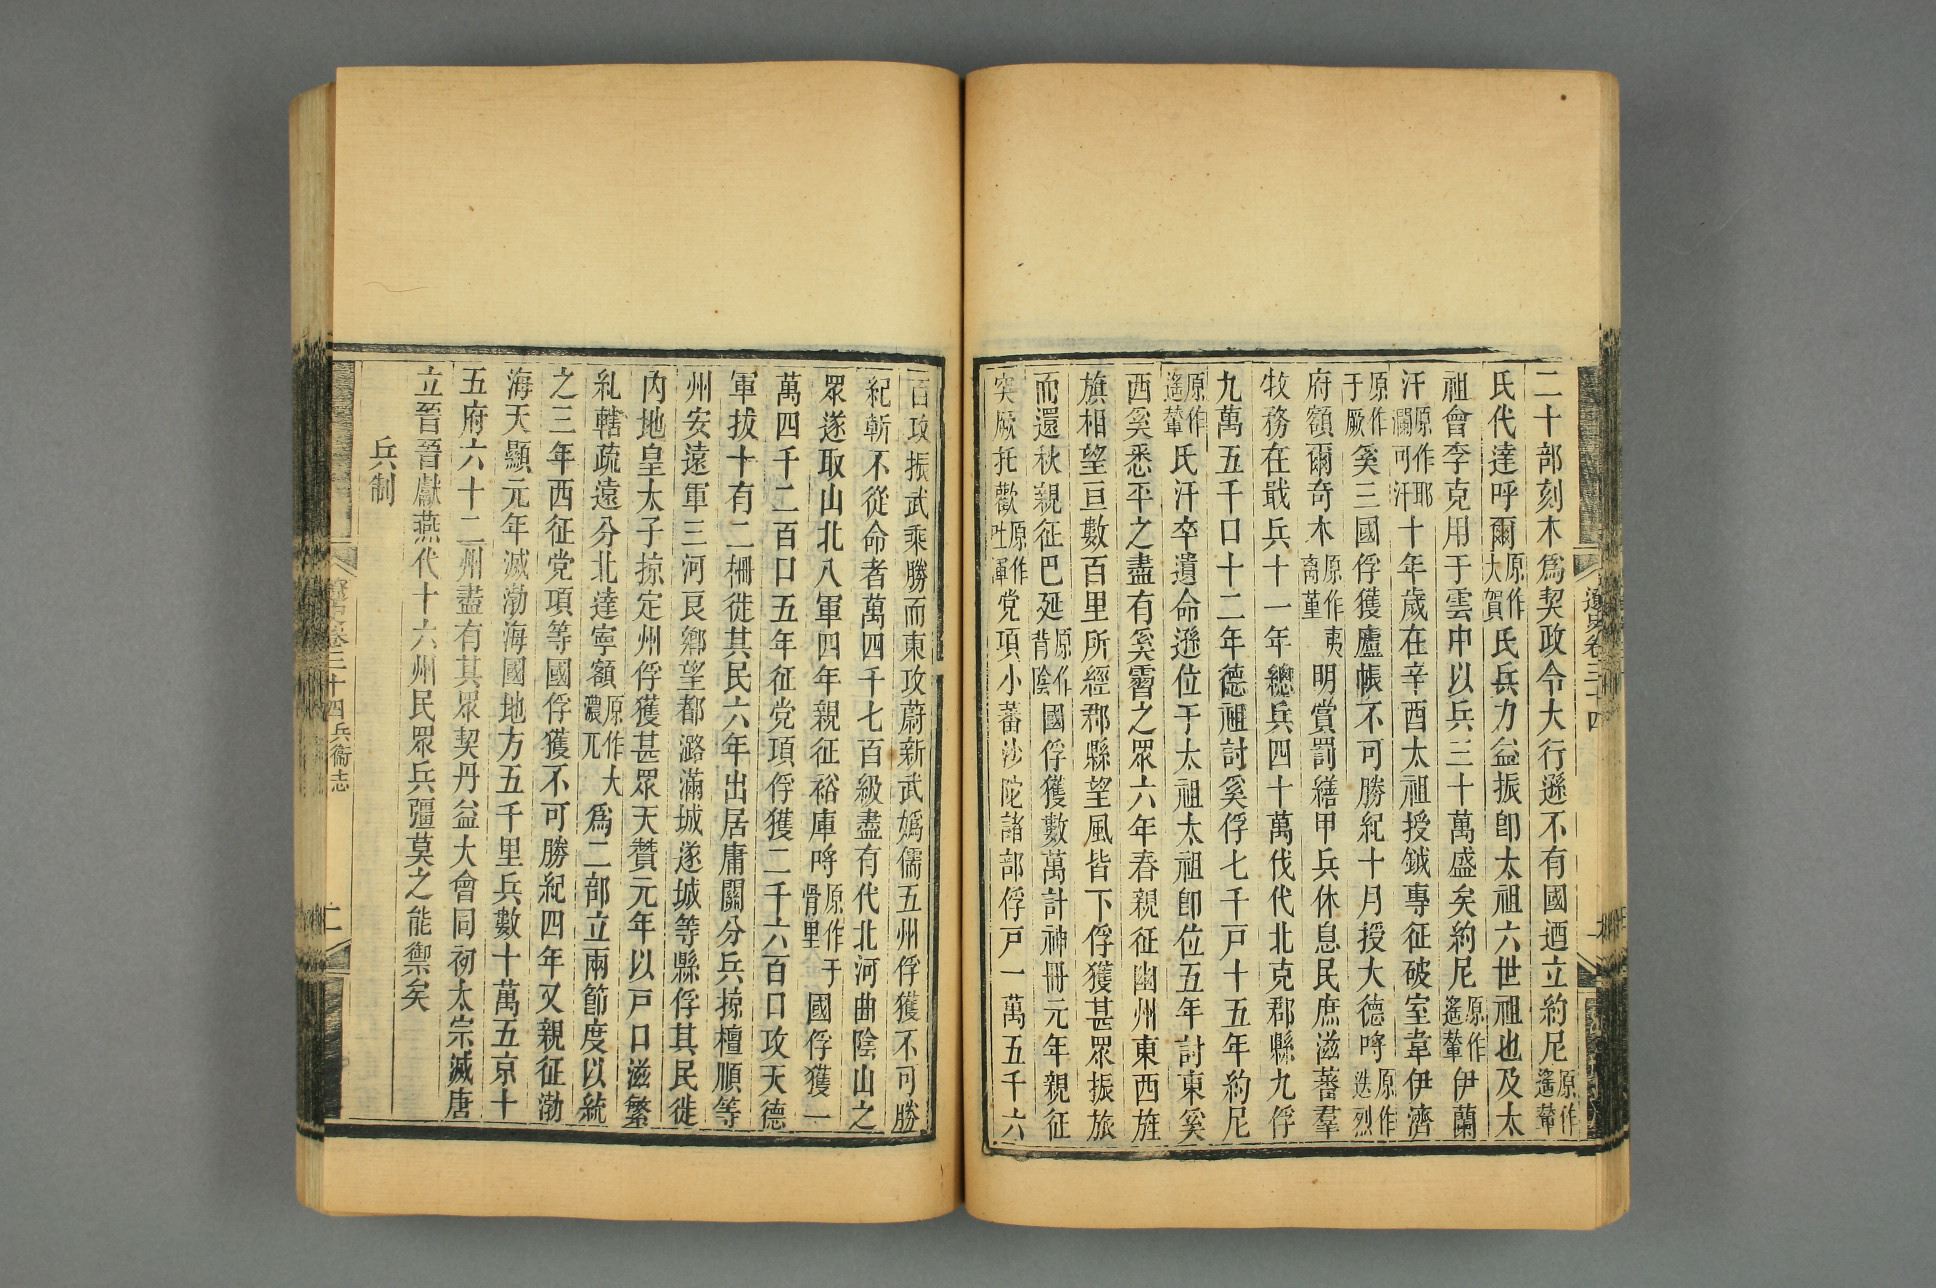 二十部刻木爲契政令大行遜不有國迺立約尼原作遙輦
氏代達呼爾原作大賀氏兵力益振卽太祖六世祖也及太
祖會李克用于雲中以兵三十萬盛矣約尼原作遙輦伊蘭
汗原作耶瀾可汗十年歲在辛酉太祖授鉞專征破室韋伊濟
原作于厥奚三國俘獲廬帳不可勝紀十月授大德呼原作迭烈
府額爾奇木原作夷离堇明賞罰繕甲兵休息民庶滋蕃羣
牧務在戢兵十一年總兵四十萬伐代北克郡縣九俘
九萬五千口十二年德祖討奚俘七千戸十五年約尼
原作遙輦氏汗卒遺命遜位于太祖太祖卽位五年討東奚
西奚悉平之盡有奚霫之眾六年春親征幽州東西旌
旗相望亘數百里所經郡縣望風皆下俘獲甚眾振旅
而還秋親征巴延原作背陰國俘獲數萬計神冊元年親征
突厥托歡原作吐渾党項小蕃沙陀諸部俘戸一萬五千六
遼史卷三十四
百攻振武乘勝而東攻蔚新武嬀儒五州俘獲不可勝
紀斬不從命者萬四千七百級盡有代北河曲陰山之
眾遂取山北八軍四年親征裕庫呼原作于骨里國俘獲一
萬四千二百口五年征党項俘獲二千六百口攻天德
軍拔十有二柵徙其民六年出居庸關分兵掠檀順等
州安遠軍三河良鄉望都潞滿城遂城等縣俘其民徙
內地皇太子掠定州俘獲甚眾天贊元年以戸口滋繁
糺轄疏遠分北達寧額原作大濃兀爲二部立兩節度以統
之三年西征党項等國俘獲不可勝紀四年又親征渤
海天顯元年滅渤海國地方五千里兵數十萬五京十
五府六十二州盡有其眾契丹益大會同初太宗滅唐
立晉晉獻燕代十六州民眾兵彊莫之能禦矣
兵制
卷三十四兵衞志
二